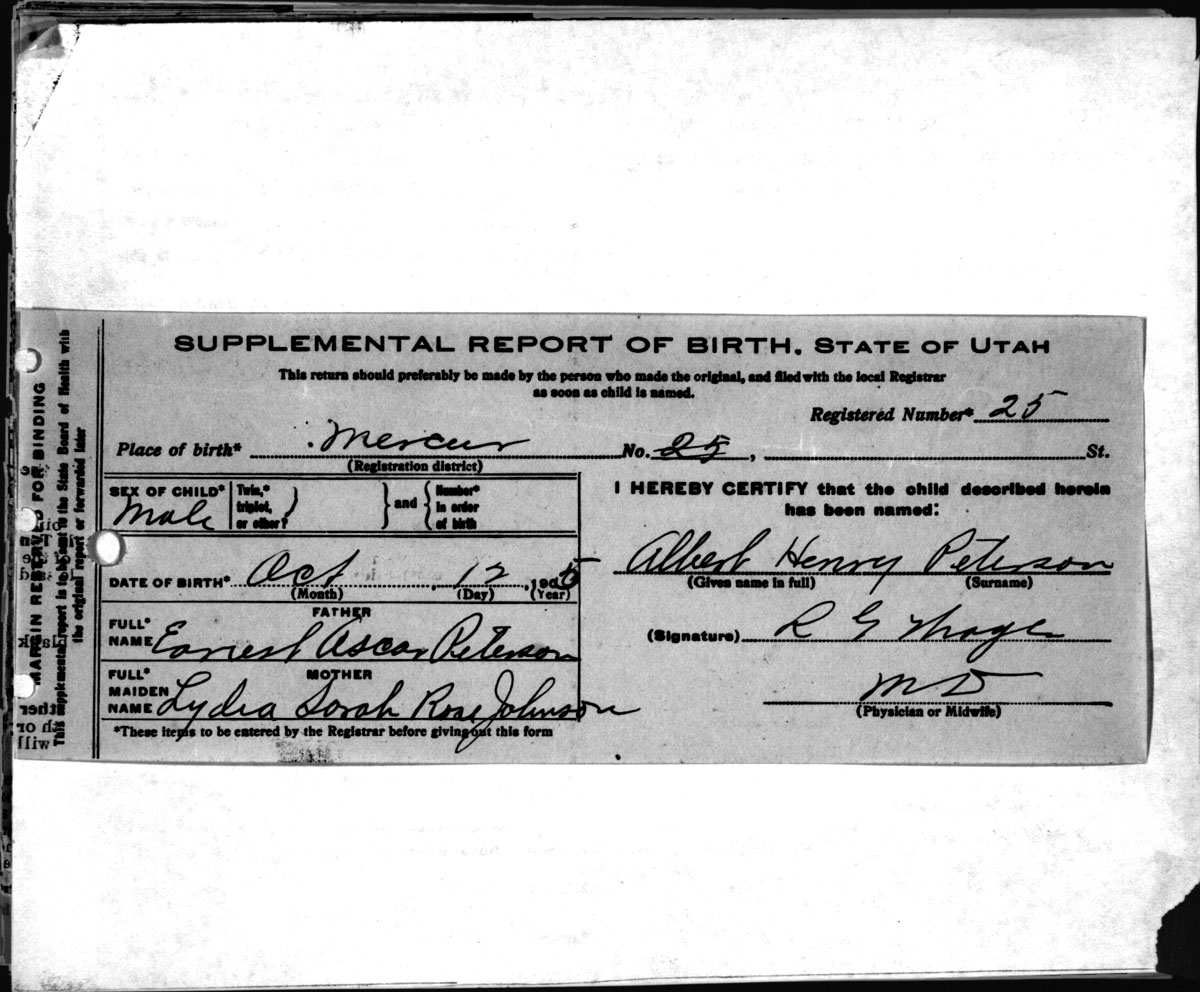 SUPPLEMENTAL REPORT OF BIRTH. STATE OF UTAH
This return should preferably be made by the person who made the original, and filed with the local Registrar
as soon as child is named.
Registered Number* 25
Place of birth* Mercur No. 25, St.
(Registration district)
SEX OF CHILD* Male
Twin,* triplet, or other?
and
Number* in order of birth
DATE OF BIRTH* Oct 12, 1905
(Month) (Day) (Year)
FATHER
FULL* NAME Earnest Ascar Peterson
MOTHER
FULL* MAIDEN NAME Lydia Sarah Rose Johnson
*These items to be entered by the Registrar before giving out this form
I HEREBY CERTIFY that the child described herein
has been named:
Albert Henry Peterson
(Given name in full) (Surname)
(Signature) R G
M D
(Physician or Midwife)
MARGIN RESERVED FOR BINDING
This supplemental report is to be sent to the State Board of Health with
the original report or forwarded later